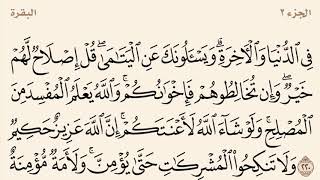 الجزء ٢ البقرة
فِي ٱلدُّنْيَا وَٱلْأَخِرَةِۗ وَيَسْـَٔلُونَكَ عَنِ ٱلْيَتَـٰمَىٰۖ قُلْ إِصْلَاحٌ لَّهُمْ
خَيْرٌۖ وَإِن تُخَالِطُوهُمْ فَإِخْوَٰنُكُمْۚ وَٱللَّهُ يَعْلَمُ ٱلْمُفْسِدَ مِنَ
ٱلْمُصْلِحِۚ وَلَوْ شَآءَ ٱللَّهُ لَأَعْنَتَكُمْۚ إِنَّ ٱللَّهَ عَزِيزٌ حَكِيمٌ
٢٢٠ وَلَا تَنكِحُوا۟ ٱلْمُشْرِكَـٰتِ حَتَّىٰ يُؤْمِنَّۚ وَلَأَمَةٌ مُّؤْمِنَةٌ